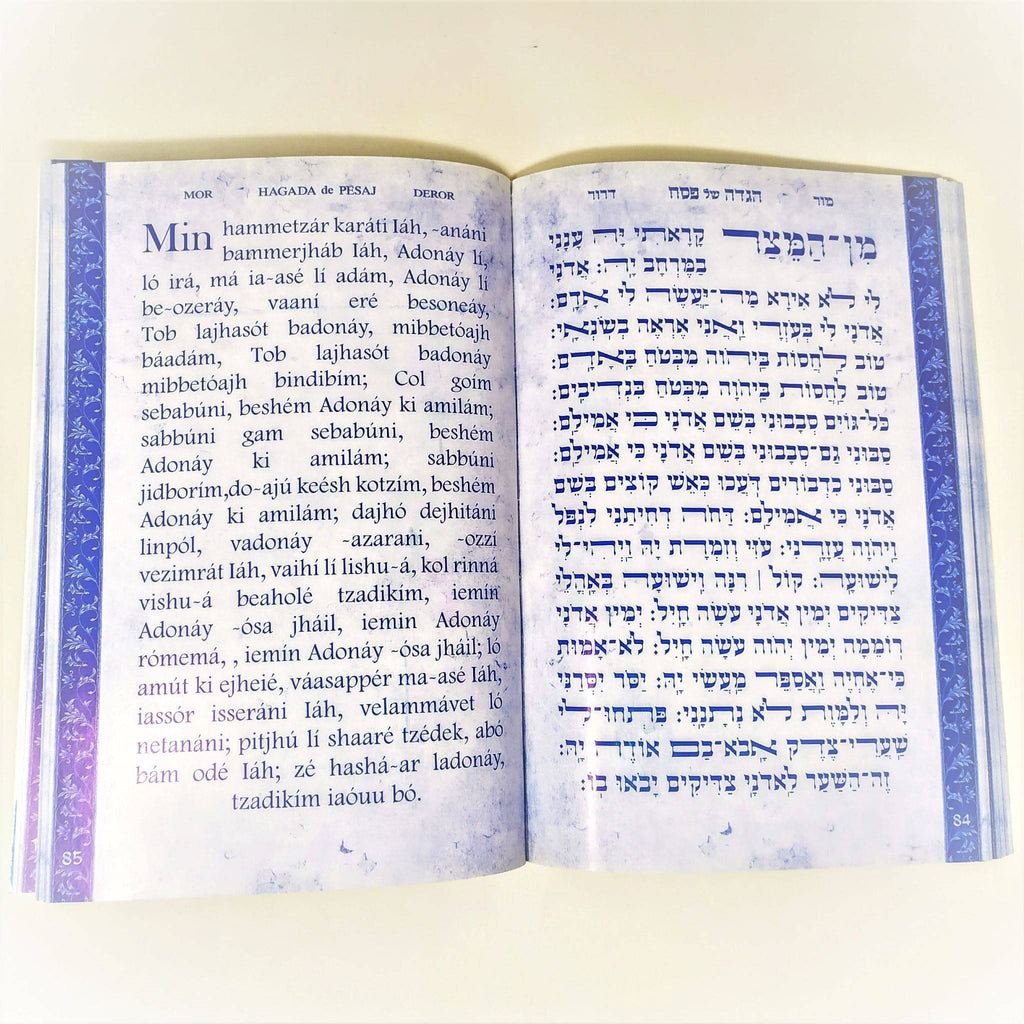 מור הגדה של פסח דרור
מִן־הַמֵּצַר קָרָאתִי יָּהּ עָנָנִי
בַמֶּרְחָב יָהּ: אֲדֹנָי
לִי לֹא אִירָא מַה־יַּעֲשֶׂה לִי אָדָם:
אֲדֹנָי לִי בְּעֹזְרָי וַאֲנִי אֶרְאֶה בְשֹׂנְאָי:
טוֹב לַחֲסוֹת בַּיהֹוָה מִבְּטֹחַ בָּאָדָם:
טוֹב לַחֲסוֹת בַּיהֹוָה מִבְּטֹחַ בִּנְדִיבִים:
כׇּל־גּוֹיִם סְבָבוּנִי בְּשֵׁם אֲדֹנָי כִּי אֲמִילַם:
סַבּוּנִי גַם־סְבָבוּנִי בְּשֵׁם אֲדֹנָי כִּי אֲמִילַם:
סַבּוּנִי כִדְבוֹרִים דֹּעֲכוּ כְּאֵשׁ קוֹצִים בְּשֵׁם
אֲדֹנָי כִּי אֲמִילַם: דַּחֹה דְחִיתַנִי לִנְפֹּל
וַיהֹוָה עֲזָרָנִי: עׇזִּי וְזִמְרָת יָהּ וַיְהִי־לִי
לִישׁוּעָה: קוֹל | רִנָּה וִישׁוּעָה בְּאׇהֳלֵי
צַדִּיקִים יְמִין אֲדֹנָי עֹשָׂה חָיִל: יְמִין אֲדֹנָי
רוֹמֵמָה יְמִין יְהֹוָה עֹשָׂה חָיִל: לֹא־אָמוּת
כִּי־אֶחְיֶה וַאֲסַפֵּר מַעֲשֵׂי יָהּ: יַסֹּר יִסְּרַנִּי
יָּהּ וְלַמָּוֶת לֹא נְתָנָנִי: פִּתְחוּ־לִי
שַׁעֲרֵי־צֶדֶק אָבֹא־בָם אוֹדֶה יָהּ:
זֶה־הַשַּׁעַר לַאדֹנָי צַדִּיקִים יָבֹאוּ בוֹ:
84
MOR HAGADA de PESAJ DEROR
Min hammetzár karáti Iáh, -anáni
bammerjháb Iáh, Adonáy lí,
ló irá, má ia-asé lí adám, Adonáy lí
be-ozeráy, vaaní eré besoneáy,
Tob lajhasót badonáy, mibbetóajh
báadám, Tob lajhasót badonáy
mibbetóajh bindibím; Col goím
sebabúni, beshém Adonáy ki amilám;
sabbúni gam sebabúni, beshém
Adonáy ki amilám; sabbúni
jidborím,do-ajú keésh kotzím, beshém
Adonáy ki amilám; dajhó dejhitáni
linpól, vadonáy -azarani, -ozzí
vezimrát Iáh, vaihí lí lishu-á, kol rinná
vishu-á beaholé tzadikím, iemín
Adonáy -ósa jháil, iemin Adonáy
rómemá, , iemín Adonáy -ósa jháil; ló
amút ki ejheié, váasappér ma-asé Iáh,
iassór isseráni Iáh, velammávet ló
netanáni; pitjhú lí shaaré tzédek, abó
bám odé Iáh; zé hashá-ar ladonáy,
tzadikím iaóuu bó.
85